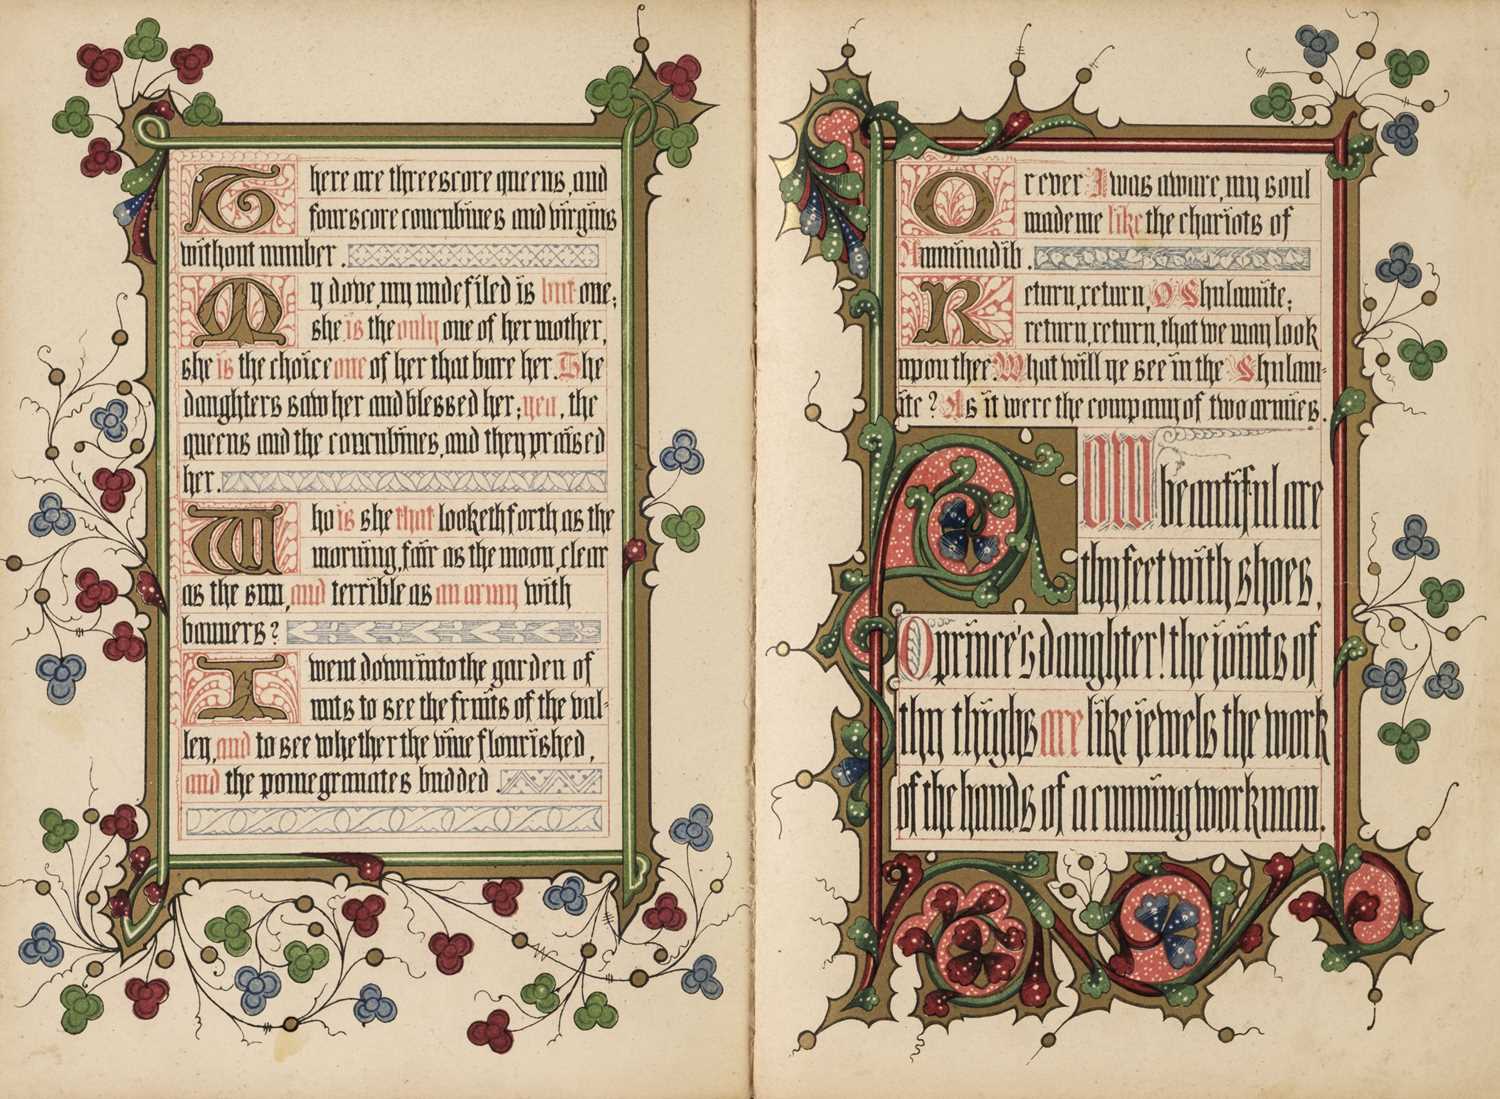 There are threescore queens, and
fourscore concubines and virgins
without number.
My dove, my undefiled is but one;
she is the only one of her mother,
she is the choice one of her that bare her. The
daughters saw her and blessed her; yea, the
queens and the concubines, and they praised
her.
Who is she that looketh forth as the
morning, fair as the moon, clear
as the sun, and terrible as an army with
banners?
I went down into the garden of
nuts to see the fruits of the val-
ley, and to see whether the vine flourished,
and the pomegranates budded.
Or ever I was aware, my soul
made me like the chariots of
Amminadib.
Return, return, O Shulamite;
return, return, that we may look
upon thee. What will ye see in the Shulam-
ite? As it were the company of two armies.
HOW beautiful are
thy feet with shoes,
O prince's daughter! the joints of
thy thighs are like jewels the work
of the hands of a cunning workman.